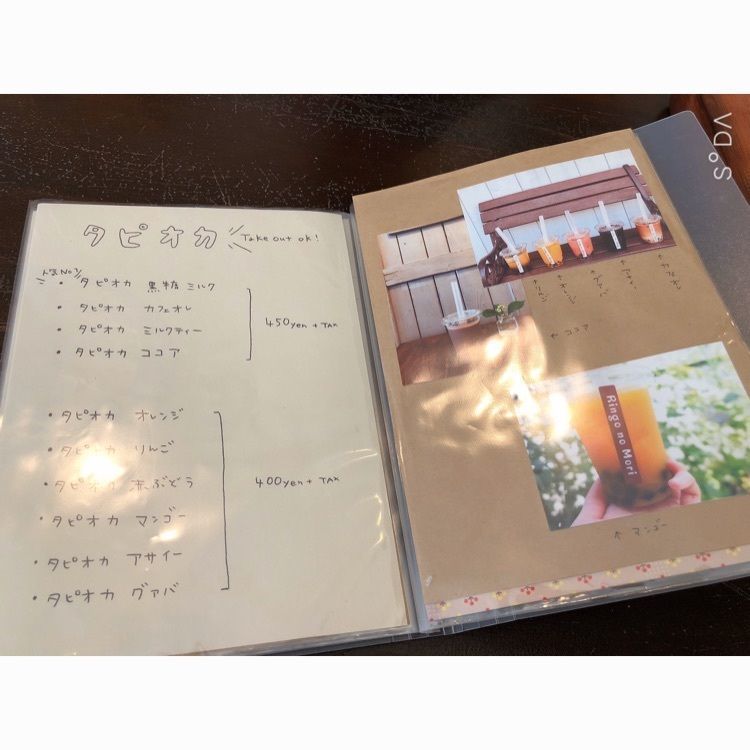 タピオカ Take out ok!
人気No.1
・タピオカ 黒糖 ミルク
・タピオカ カフェオレ
・タピオカ ミルクティー
・タピオカ ココア
450yen + TAX
・タピオカ オレンジ
・タピオカ りんご
・タピオカ 赤ぶどう
・タピオカ マンゴー
・タピオカ アサイー
・タピオカ グァバ
400yen + TAX
↑りんご
↑オレンジ
↑グァバ
↑アサイー
↑カフェオレ
← ココア
Ringo no Mori
↑ マンゴー
SODA